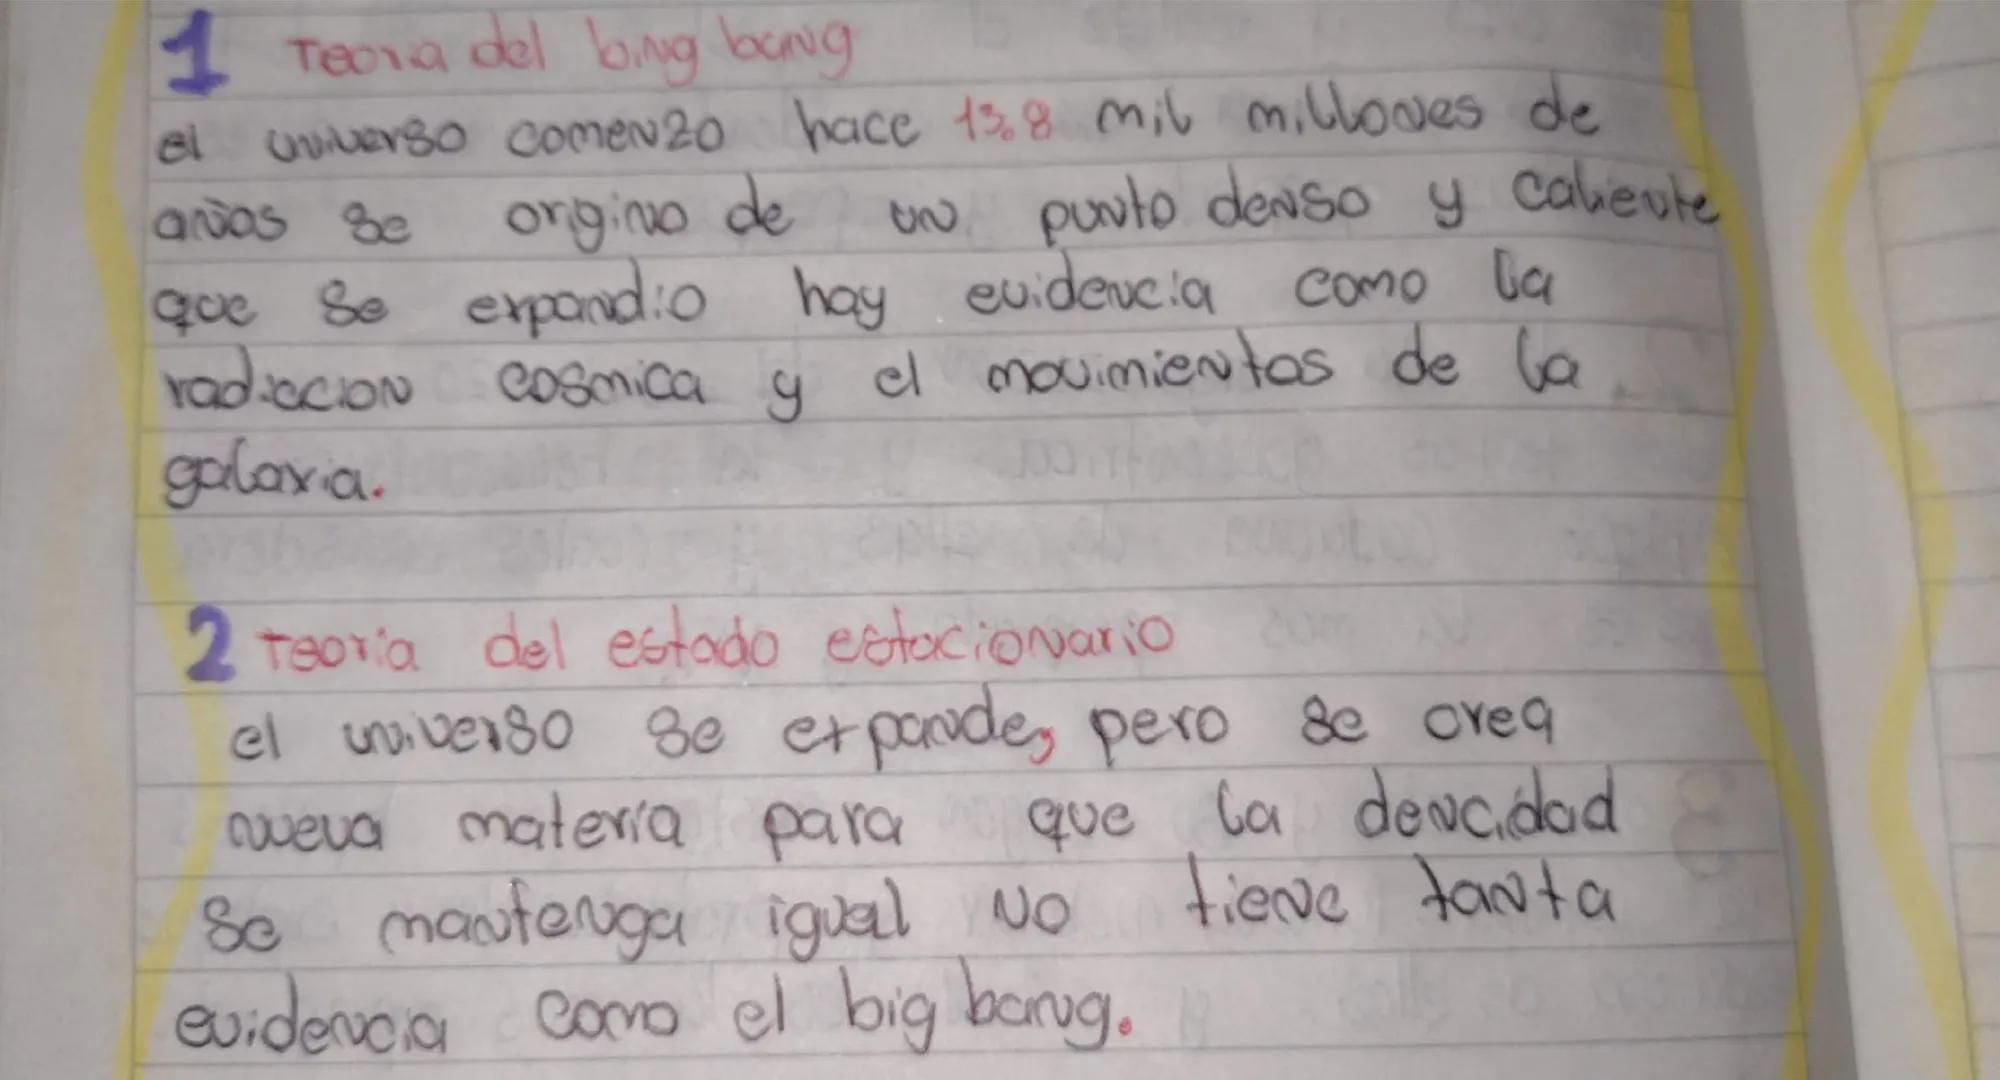 1 Teoria del bing bang
el universo comenzo hace 13.8 mil millones de
años se origino de un punto denso y caliente
que se expandio hay evidencia como la
radiccion cosmica y el movimientos de la
galaxia.
2 Teoria del estado estacionario
el universo se expande, pero se crea
nueva materia para que la dencidad
se mantenga igual no tiene tanta
evidencia como el big bang.